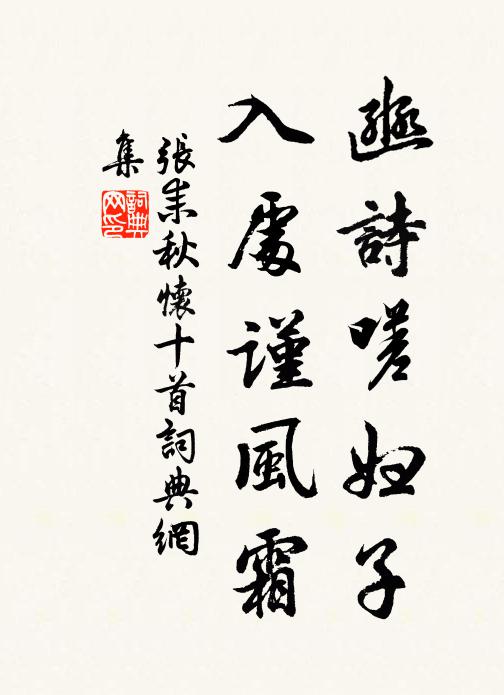 豳詩嗟婦子
入處謹風霜
張耒秋懷十首詞典網
集
詞典
网印